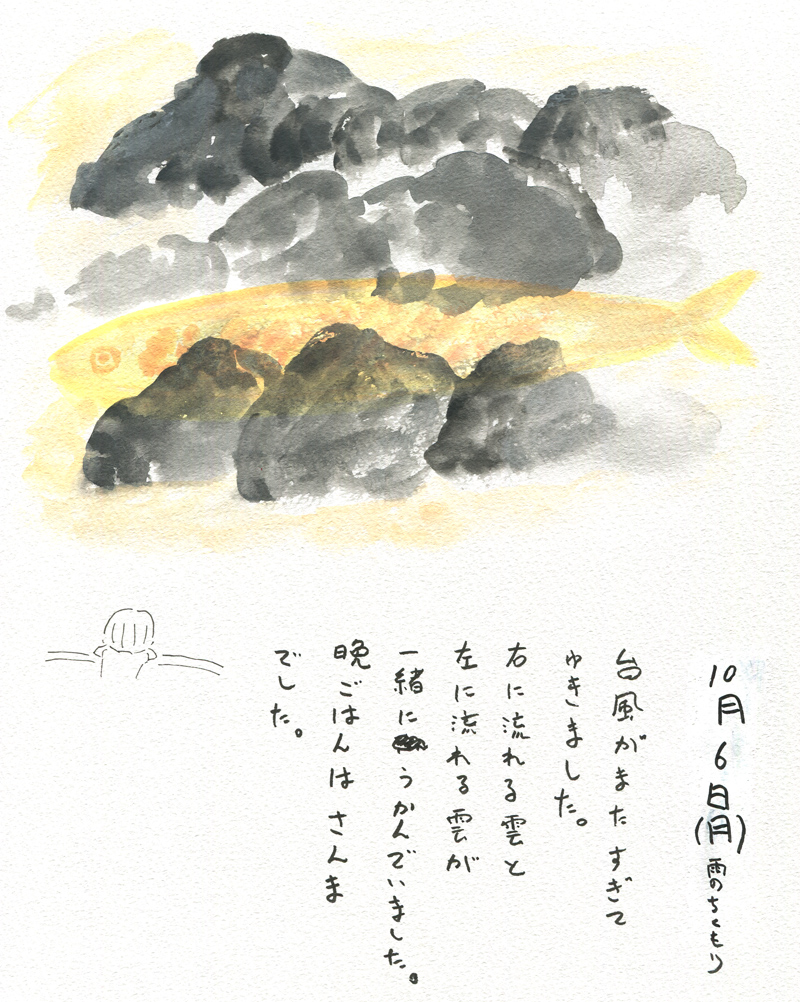 10月6日(月)雨のちくもり
台風がまたすぎて
ゆきました。
右に流れる雲と
左に流れる雲が
一緒にうかんでいました。
晩ごはんはさんま
でした。